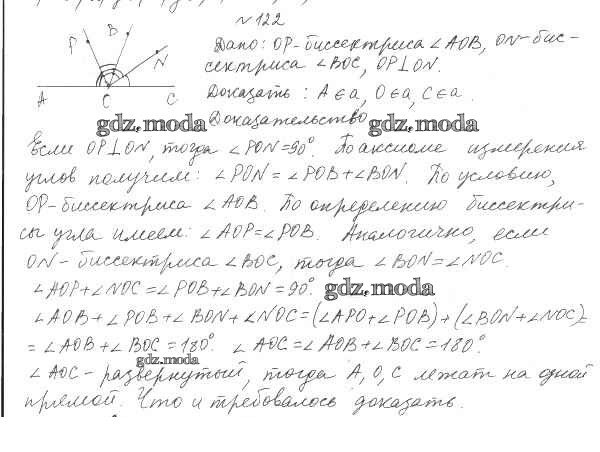 №122
P B N
A C C
Дано: OP-биссектриса ∠AOB, ON-бис-
сектриса ∠BOC, OP⊥ON.
Доказать: A∈a, O∈a, C∈a.
gdz.moda Доказательство gdz.moda
Если OP⊥ON, тогда ∠PON=90°. По аксиоме измерения
углов получим: ∠PON=∠POB+∠BON. По условию,
OP-биссектриса ∠AOB. По определению биссектри-
сы угла имеем: ∠AOP=∠POB. Аналогично, если
ON-биссектриса ∠BOC, тогда ∠BON=∠NOC.
∠AOP+∠NOC=∠POB+∠BON=90°. gdz.moda
∠AOB+∠POB+∠BON+∠NOC=(∠APO+∠POB)+(∠BON+∠NOC)=
=∠AOB+∠BOC=180°. ∠AOC=∠AOB+∠BOC=180°.
gdz.moda
∠AOC-развернутый, тогда A, O, C лежат на одной
прямой. Что и требовалось доказать.